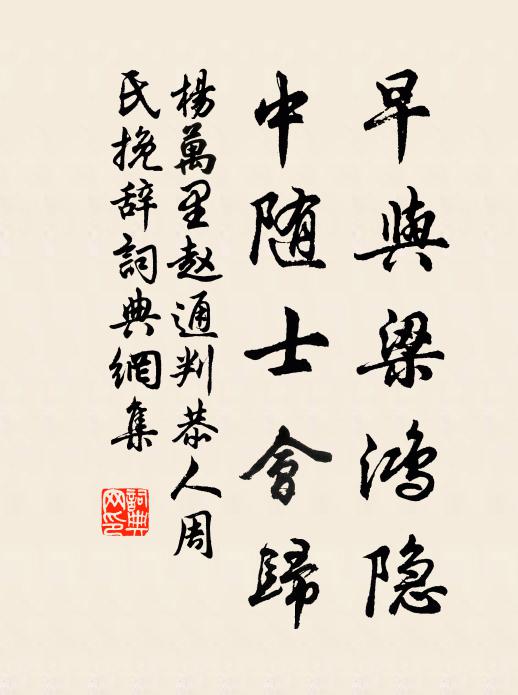 早與梁鴻隐
中随士會歸
楊萬里赵通判恭人周
氏挽辞詞典網集
詞典网印